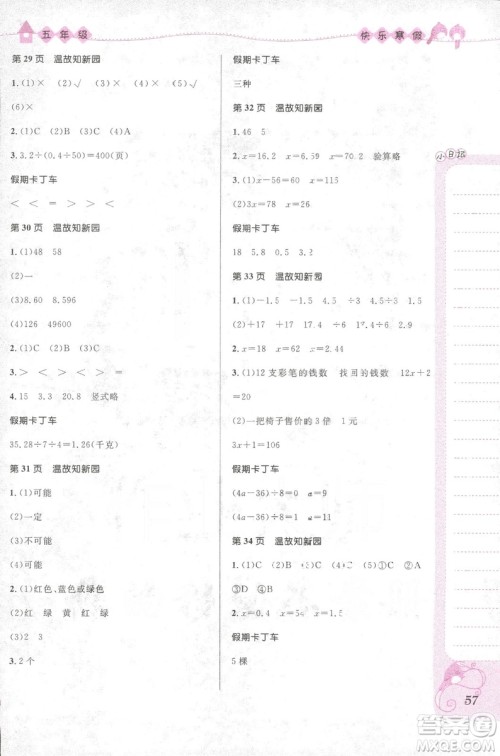 五年级
快乐寒假
第29页 温故知新园
1.(1)× (2)√ (3)× (4)√ (5)√
(6)×
2.(1)C (2)B (3)C (4)A
3.3.2÷(0.4÷50)=400(页)
假期卡丁车
＜ ＜ ＞ ＜ ＝ ＞
第30页 温故知新园
1.(1)48 58
(2)一
(3)8.59 8.596
(4)126 49600
2.(1)B (2)C (3)A (4)C
3.＞ ＞ ＜ ＞ ＞ ＜
4.15 3.3 20.8 竖式略
假期卡丁车
35.28÷7÷4=1.26(千克)
第31页 温故知新园
1.(1)可能
(2)一定
(3)不可能
(4)可能
2.(1)红色、蓝色或绿色
(2)红 绿 黄 红 绿
(3)2 3
3.2个
假期卡丁车
三种
第32页 温故知新园
1.46 5
2.x=16.2 x=6.59 x=70.2 验算略
3.(1)x-56=60 x=116
(2)3x=78 x=26
假期卡丁车
18 5.8 3.2
第33页 温故知新园
1.(1)-1.5 -1.5 ÷1.3 ÷1.3
(2)+12 +12 ÷4.5 ÷4.5
2.x=18 x=62 x=44
3.(1)12支彩笔的钱数 找回的钱数 12x+2
=20
(2)一把椅子售价的3倍 1元
3x+1=100
假期卡丁车
(4a-36)÷8=0
(4a-36)÷8=1
第34页 温故知新园
1.(1)C (2)C (3)AB (4)C (5)A
③D ④A
2.x=0.4 x=5 x=1.5
假期卡丁车
5棵
小日记
57